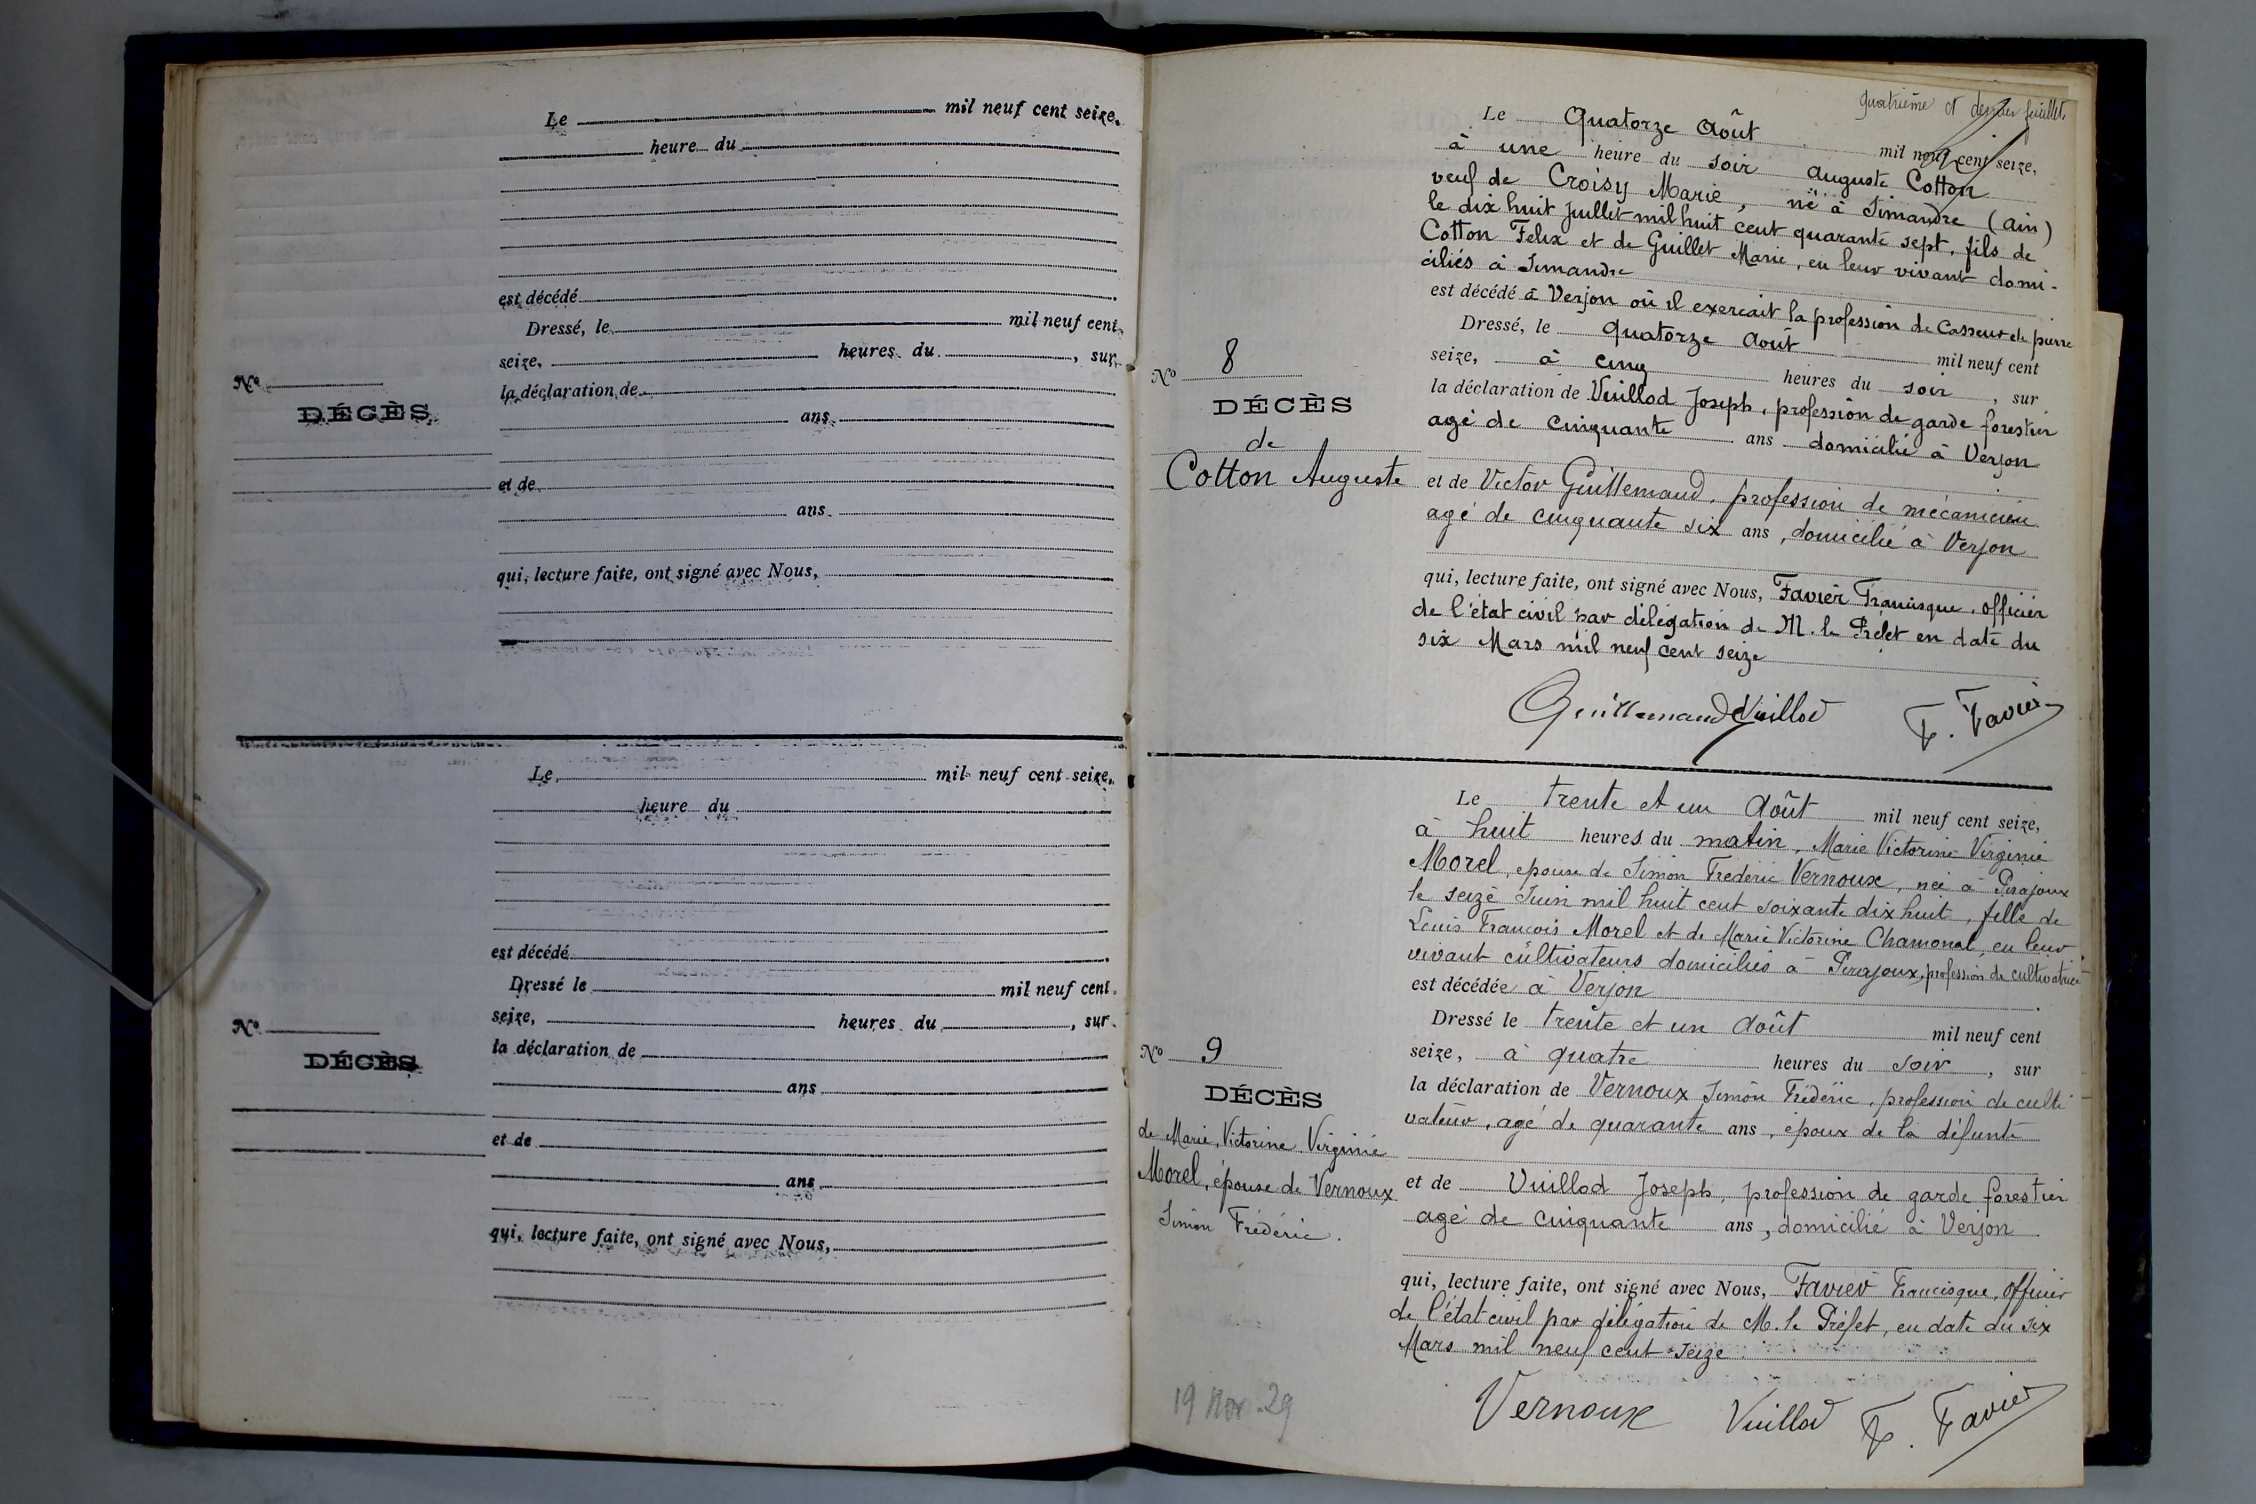 Le mil neuf cent seize,
heure du
est décédé
Dressé, le mil neuf cent
seize, heures du , sur
la déclaration de
ans
et de
ans
qui, lecture faite, ont signé avec Nous,
No
DÉCÈS
Le mil neuf cent seize,
heure du
est décédé
Dressé le mil neuf cent
seize, heures du , sur
la déclaration de
ans
et de
ans
qui, lecture faite, ont signé avec Nous,
No
DÉCÈS
Quatrième et dernier feuillet
No 8
DÉCÈS
de
Cotton Auguste
Le Quatorze Août mil neuf cent seize,
à une heure du soir Auguste Cotton
veuf de Croisy Marie, né à Simandre (Ain)
le dix huit juillet mil huit cent quarante sept, fils de
Cotton Felix et de Guillet Marie, en leur vivant domi-
ciliés à Simandre
est décédé à Verjon où il exercait la profession de Casseur de pierre
Dressé, le quatorze Août mil neuf cent
seize, à cinq heures du soir , sur
la déclaration de Vuillod Joseph, profession de garde forestier
agé de cinquante ans domicilié à Verjon
et de Victor Guillemaud, profession de mécanicien
agé de cinquante six ans, domicilié à Verjon
qui, lecture faite, ont signé avec Nous, Favier Francisque, officier
de l'état civil par délégation de M. le Préfet en date du
six Mars mil neuf cent seize
Guillemaud Vuillod F. Favier
No 9
DÉCÈS
de Marie, Victorine Virginie
Morel, épouse de Vernoux
Simon Frédéric.
Le trente et un Août mil neuf cent seize,
à huit heures du matin, Marie Victorine Virginie
Morel, épouse de Simon Frédéric Vernoux, née à Pirajoux
le seize Juin mil huit cent soixante dix huit, fille de
Louis François Morel et de Marie Victorine Chamonal, en leur
vivant cultivateurs domiciliés à Pirajoux, profession de cultivatrice
est décédée à Verjon
Dressé le trente et un Août mil neuf cent
seize, à quatre heures du soir , sur
la déclaration de Vernoux Simon Frédéric, profession de culti-
vateur, agé de quarante ans, époux de la défunte
et de Vuillod Joseph, profession de garde forestier
agé de cinquante ans, domicilié à Verjon
qui, lecture faite, ont signé avec Nous, Favier Francisque, officier
de l'état civil par délégation de M. le Préfet, en date du six
Mars mil neuf cent seize.
Vernoux Vuillod F. Favier
19 Nov. 29